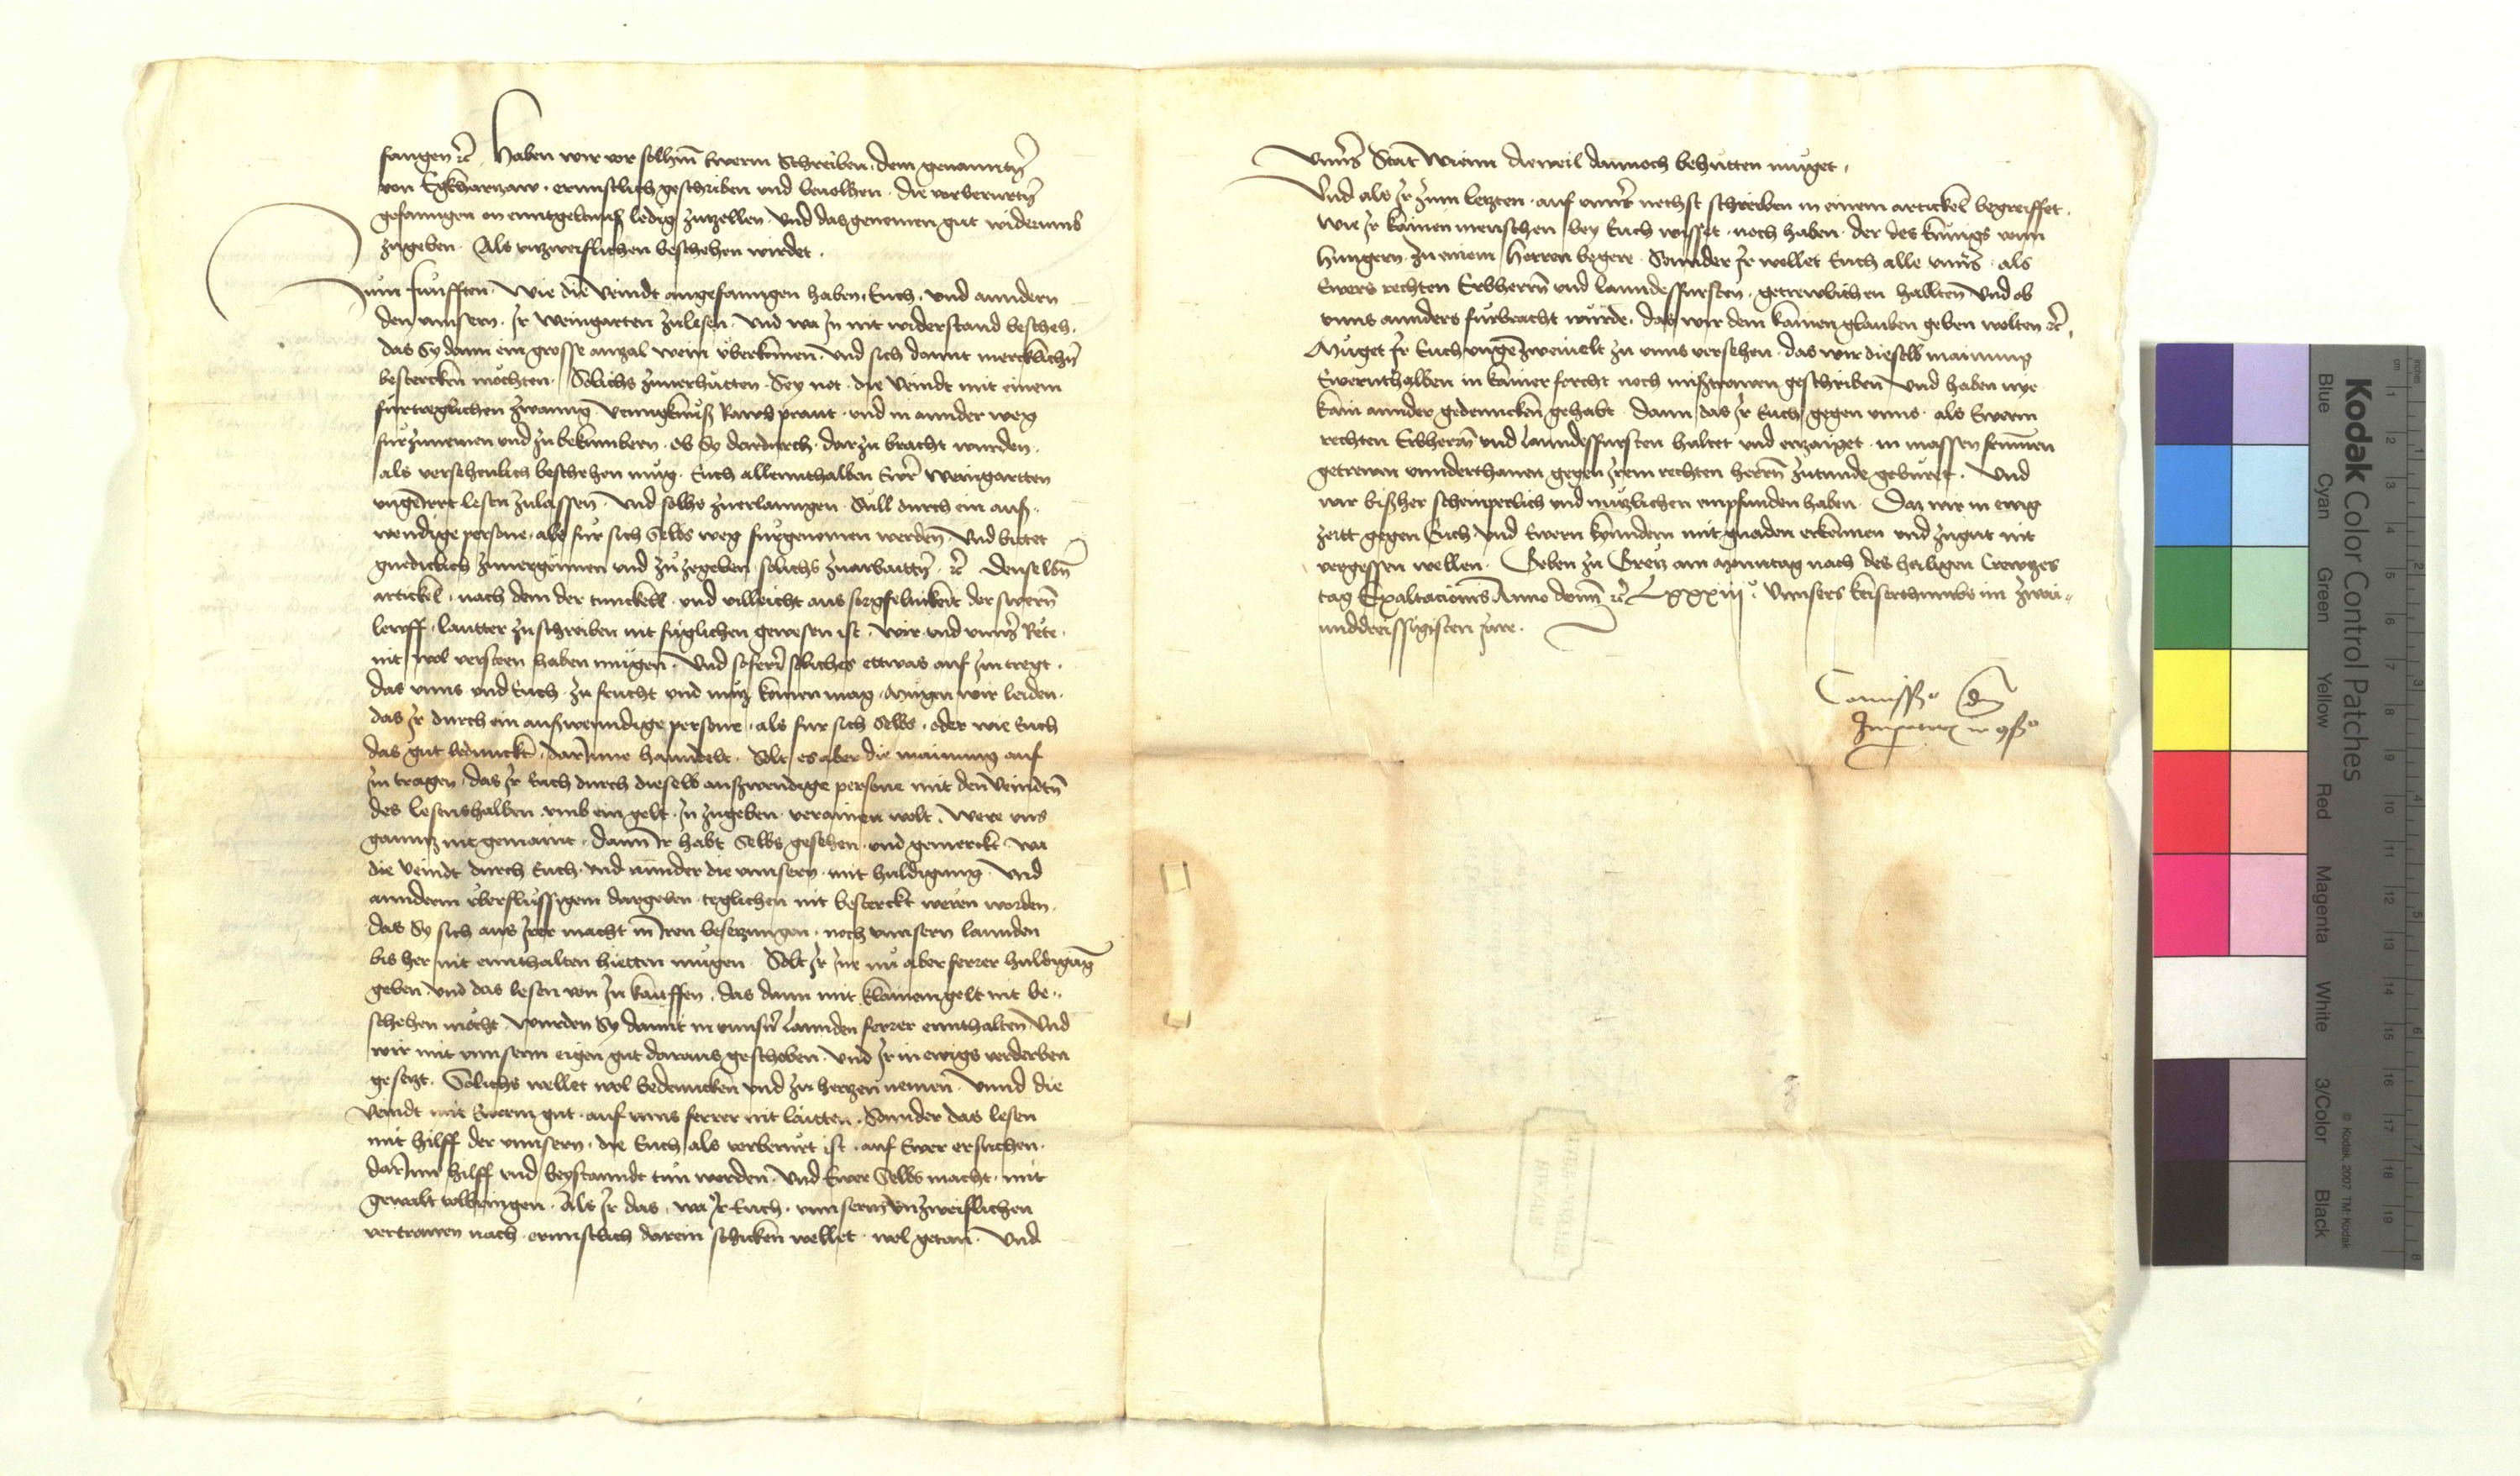 fangen etc. Haben wir vor solhm Ewerm Schreiben, dem genannten
von Egkharczaw, ernnstlich geschriben und beuolhen, die vorberurten
gefanngen on enntgeltnuß ledig zutzellen, und das genomen gut widerumb
zugeben. Als unzweiflichen beschehen wirdet.
Zum funfften. Wie die Veindt angefanngen haben, Euch, und anndern
den unnsern, Ir Weingarten zulesen, und wa In nit widerstand bescheh,
das Sy dann ein grosse anzal wein uberkomen, und sich damit mercklichen
bestercken mochten. Solichs zuuerhutten, Sey not, die Veindt mit einem
furtreglichen zwanng, Venngknuß Rawb prant, und in annder weg
furzunemen und zu bekumbern, ob Sy dardurch, darzu bracht wurden,
als versehenlich beschehen mug, Euch allennthalben Ewr Weingartten
ungeirrt lesen zulassen, und solhs zuerlanngen, Sull durch ein auß-
wendige persone, als fur sich Selbs weg furgenomen werden, Und bittet
gnediclich zuuergunnen und zu zegeben solichs zuarbaitten etc. Denselben
artickel, nach dem der tunckell, und villeicht aus sorgfelnikeit der swern
lewff, lautter zuschreiben nit fuglichen gewesen ist, Wir und unnser Rete,
nit wol versteen haben mugen, Und sofern soliches ettwas auf Im tregt,
das unns und Euch zu frucht und nutz komen mag, Mugen wir leiden,
das Ir durch ein außwenndige persone, als fur sich Selbs, oder wie Euch
das gut bedunckt, darInne hanndelt. Solt es aber die mainung auf
Im tragen, das Ir Euch durch dieselb außwendige persone mit den Veindten
des lesenshalben, umb ein gelt, In zugeben verainen wolt, Were uns
gannz nit gemaint, dann Ir habt Selbs gesehen und gemerckt, wa
die Veindt durch Euch, und annder die unnsern, mit huldigung, und
annderm uberflussigem dargeben, teglichen nit besterckt weren worden,
das Sy sich aus Irer macht in Iren besetzungen, noch unnsern lannden
bis her nit enthalten hietten mugen. Solt Ir Ine nu aber ferrer huldigung
geben, und das lesen von In kauffen, das dann mit klainem gelt nit be-
schehen mocht, wurden Sy damit in unnsern lannden ferrer ennthalten, Und
wir mit unnserm eigen gut daraus geschoben, Und Ir in ewigs verderben
gesetzt. Solichs wellet wol bedenncken und zu hertzen nemen, Unnd die
Veindt mit Ewerm gut, auf unns ferrer nit laitten, Sonnder das lesen
mit hilff der unnsern, die Euch als vorberurt ist, auf Ewer ersuchen,
darInn hilff und beystanndt tun werden, Und Ewer Selbs macht, mit
gewalt volbringen. Als Ir das, wa Ir Euch, unnserm unzweiflichen
vertrawen nach, ernnstlich darein schicken wellet, wol getan, Und
Unnser Stat Wienn dieweil dannoch behutten muget.
Und als Ir zum letzten, auf unnser nechst schreiben in einem artickel begreiffet,
Wie Ir kainen menschen bey Euch wisset, noch haben, der des kunigs vonn
Hungern zu einem Herren begere, Sonnder Ir wellet Euch alle unns, als
Ewers rechten Erbherrn und lanndesfursten, getrewlichen hallten, Und ob
unns annders furbracht wurde, das wir dem kainen glauben geben wolten etc.
Muget Ir Euch ungezweiuelt zu unns versehen, das wir dieselb mainung
Ewernthalben in kainer forcht noch mißtrawen geschriben, Und haben nye
kain annder gedenncken gehabt, dann das Ir Euch gegen unns, als Ewerm
rechten Erbherrn und lanndesfursten haltet und erzaiget, in massen frummen
getrewen unnderthanen gegen Irem rechten herrn zutunde geburet, Und
wir bißher scheinperlich und nutzlichen empfunden haben. Daz wir in ewig
zeitt gegen Euch und Ewern kinndern mit gnaden erkennen und zugut nit
vergessen wellen. Geben zu Gretz am Monntag nach des heiligen Crewtzes
tag Exaltacionis Anno domini etc. Lxxxiii. Unnsers keiserthumbs im zwai-
unddreissigisten Jare.
Comissio d
Imperatoris in cosio
Kodak Color Control Patches
Blue Cyan Green Yellow Red Magenta White 3/Color Black
© Kodak, 2007 TM: Kodak